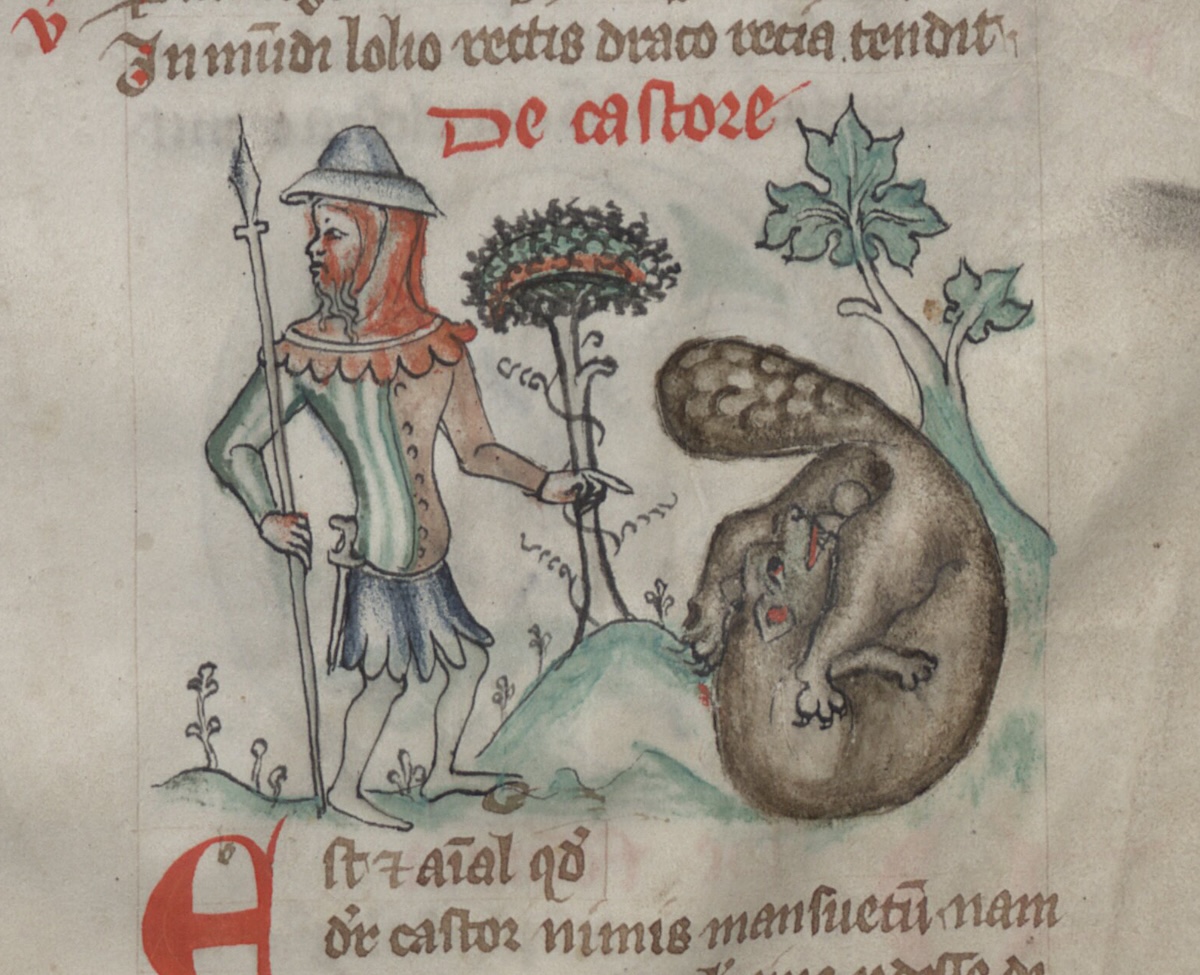 v
In mūdi lolio rectis draco recia tendit
De castore
Est ⁊ aīal qđ
đr castor nimis mansuetū nam